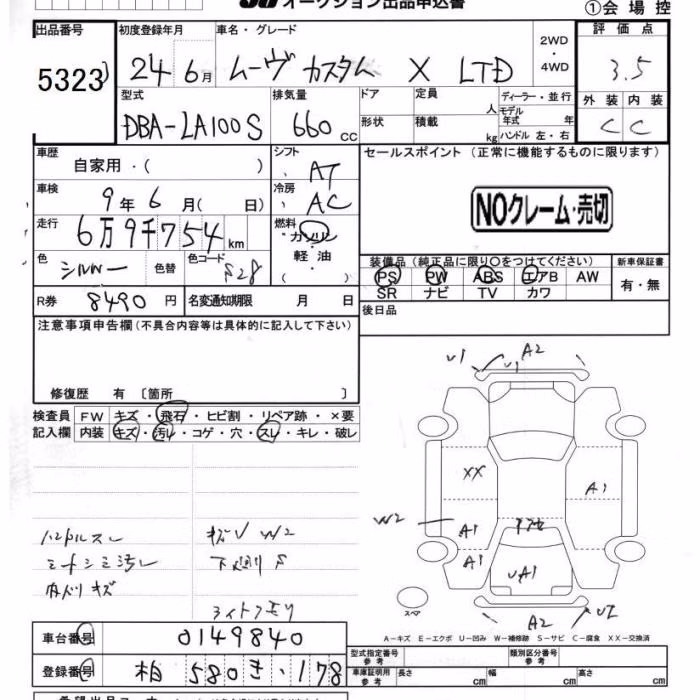 オークション出品申込書
①会場控
出品番号
5323
初度登録年月
24 6月
車名・グレード
ムーヴ カスタム X LTD
2WD
4WD
評価点
3.5
外装 内装
C C
型式
DBA-LA100S
排気量
660 CC
ドア
形状
定員 人
積載 kg
ディーラー・並行
モデル年式 年式
ハンドル 左・右
車歴
自家用・( )
シフト
AT
セールスポイント(正常に機能するものに限ります)
NOクレーム・売切
車検
9年 6月( 日)
冷房
AC
走行
6万9千754km
燃料
ガソリン
軽油
( )
色
シルバー
色替
色コード
S28
装備品(純正品に限り○をつけてください)
PS PW ABS エアB AW
SR ナビ TV カワ
新車保証書
有・無
R券 8490円
名変通知期限 月 日
後日品
注意事項申告欄(不具合内容等は具体的に記入して下さい)
修復歴 有〔箇所 〕
検査員 FW キズ・飛石・ヒビ割・リペア跡・×要
記入欄 内装 キズ・汚れ・コゲ・穴・スレ・キレ・破レ
ハンドルスレ
シートシミ汚レ
内ドリキズ
キズV W2
下廻りS
U1 U1 A2
XX
A1
W2
A1
A1
UA1
A2
スペア
A-キズ E-エクボ U-凹み W-補修跡 S-サビ C-腐食 XX-交換済
車台番号 0149840
登録番号 柏 580 き・178
型式指定番号 参考
類別区分番号 参考
車庫証明用 参考 長さ cm 幅 cm 高さ cm